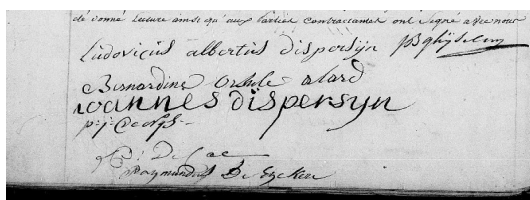 de donné Lecture ainsi qu'aux parties contractantes ont signé avec nous
Ludovicus albertus dispersijn
Bernardine alard
ioannes dispersyn
De
Raymundus De Eyckere